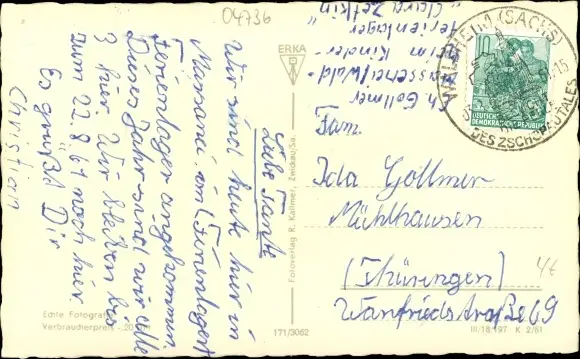 04736
Liebe Tante
Wir sind heute hier in
Massanei im (Ferienlager)
Ferienlager angekommen.
Dieses Jahr sind wir alle
3 hier. Wir bleiben bis
zum 22.8.61 noch hier.
Es grüßt Dir
Christian
Ch. Gollmer
Massanei/Wald-
heim Kinder-
ferienlager
"Clara Zetkin"
WALDHEIM (SACHS)
DES ZSCHOPAUTALES
10
DEUTSCHE
DEMOKRATISCHE REPUBLIK
ERKA
Fam.
Ida Gollmer
Mühlhausen
(Thüringen)
Wanfriedstraße 69
4€
Fotoverlag R. Kallmer, Zwickau/Sa.
171/3062
Echte Fotografie
Verbraucherpreis -.20 DM
III/18/197 K 2/61